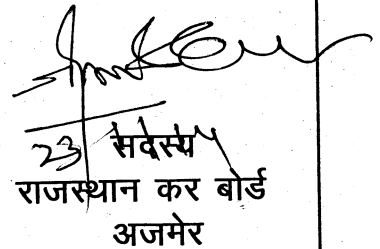 23
सदस्य
राजस्थान कर बोर्ड
अजमेर